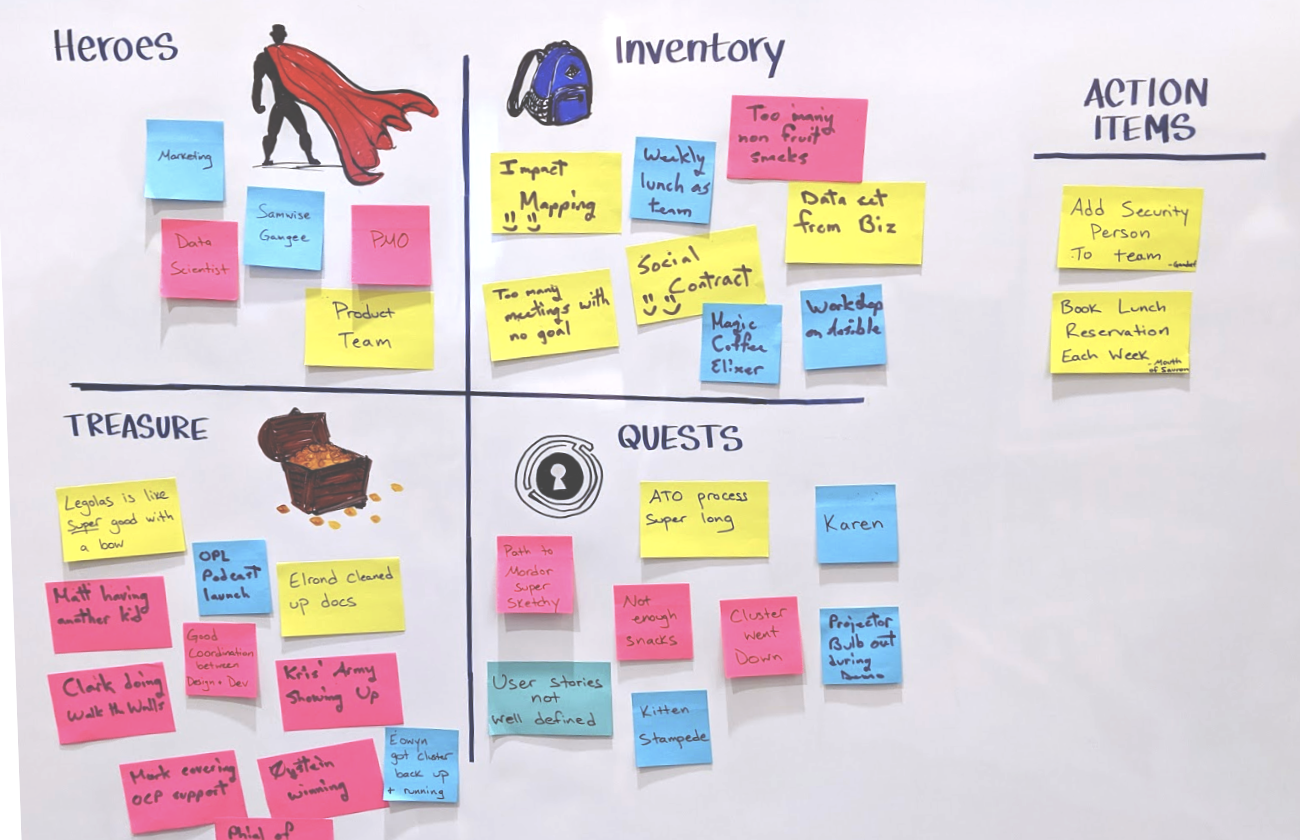 Heroes
Marketing
Samwise
Gamgee
Data
Scientist
PMO
Product
Team
Inventory
Impact
Mapping
Weekly
lunch as
team
Too many
non fruit
snacks
Data set
from Biz
Social
Contract
Too many
meetings with
no goal
Magic
Coffee
Elixer
Workshop
on
ACTION
ITEMS
Add Security
Person
To team
- Gandalf
Book Lunch
Reservation
Each Week
- Mouth
of Sauron
TREASURE
Legolas is like
super good with
a bow
OPL
Podcast
launch
Elrond cleaned
up docs
Matt having
another kid
Good
Coordination
between
Design + Dev
Clark doing
Walk the Walls
Kris' Army
Showing Up
Mark covering
OCP support
Øystein
winning
Eowyn
got cluster
back up
+ running
Phial of
QUESTS
ATO process
Super long
Karen
Path to
Mordor
super
sketchy
Not
enough
snacks
Cluster
went
Down
Projector
Bulb out
during
Demo
User stories
not
well defined
Kitten
Stampede